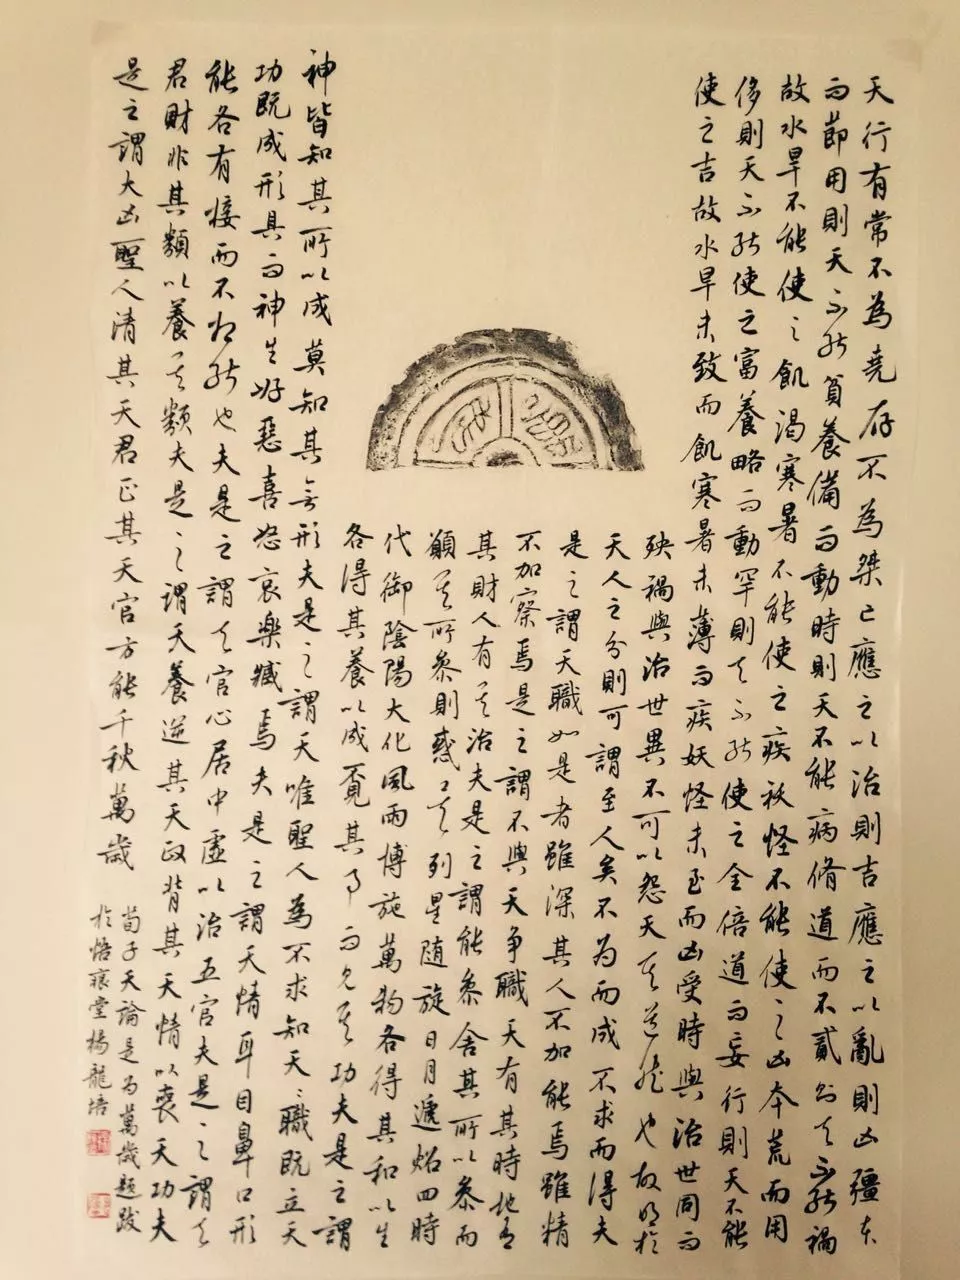 天行有常不為堯存不為桀亡應之以治則吉應之以亂則凶彊本
而節用則天不能貧養備而動時則天不能病脩道而不貳則天不能禍
故水旱不能使之飢渴寒暑不能使之疾祅怪不能使之凶本荒而用
侈則天不能使之富養略而動罕則天不能使之全倍道而妄行則天不能
使之吉故水旱未致而飢寒暑未薄而疾妖怪未至而凶受時與治世同而
殃禍與治世異不可以怨天其道然也故明於
天人之分則可謂至人矣不為而成不求而得夫
是之謂天職如是者雖深其人不加能焉雖精
不加察焉是之謂不與天争職天有其時地有
其財人有其治夫是之謂能參舍其所以參而
願其所參則惑矣列星随旋日月遞炤四時
代御陰陽大化風雨博施萬物各得其和以生
各得其養以成不見其事而見其功夫是之謂
神皆知其所以成莫知其無形夫是之謂天唯聖人為不求知天〻職既立天
功既成形具而神生好惡喜怒哀樂臧焉夫是之謂天情耳目鼻口形
能各有接而不相能也夫是之謂天官心居中虛以治五官夫是之謂天
君財非其類以養其類夫是之謂天養逆其天政背其天情以喪天功夫
是之謂大凶聖人清其天君正其天官方能千秋萬歲
荀子天論是為萬歲題跋
於悟痕堂楊龍培